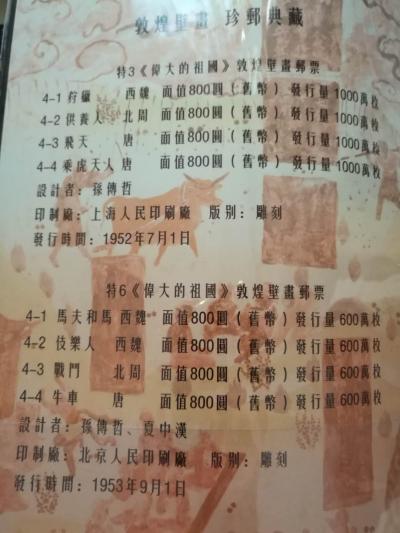 敦煌壁畫 珍郵典藏
特3《偉大的祖國》敦煌壁畫郵票
4-1 狩獵 西魏 面值800圓(舊幣) 發行量1000萬枚
4-2 供養人 北周 面值800圓(舊幣) 發行量1000萬枚
4-3 飛天 唐 面值800圓(舊幣) 發行量1000萬枚
4-4 乘虎天人 唐 面值800圓(舊幣) 發行量1000萬枚
設計者:孫傳哲
印制廠:上海人民印刷廠 版别:雕刻
發行時間:1952年7月1日
特6《偉大的祖國》敦煌壁畫郵票
4-1 馬夫和馬 西魏 面值800圓(舊幣) 發行量600萬枚
4-2 伎樂人 西魏 面值800圓(舊幣) 發行量600萬枚
4-3 戰鬥 北周 面值800圓(舊幣) 發行量600萬枚
4-4 牛車 唐 面值800圓(舊幣) 發行量600萬枚
設計者:孫傳哲、夏中漢
印制廠:北京人民印刷廠 版别:雕刻
發行時間:1953年9月1日